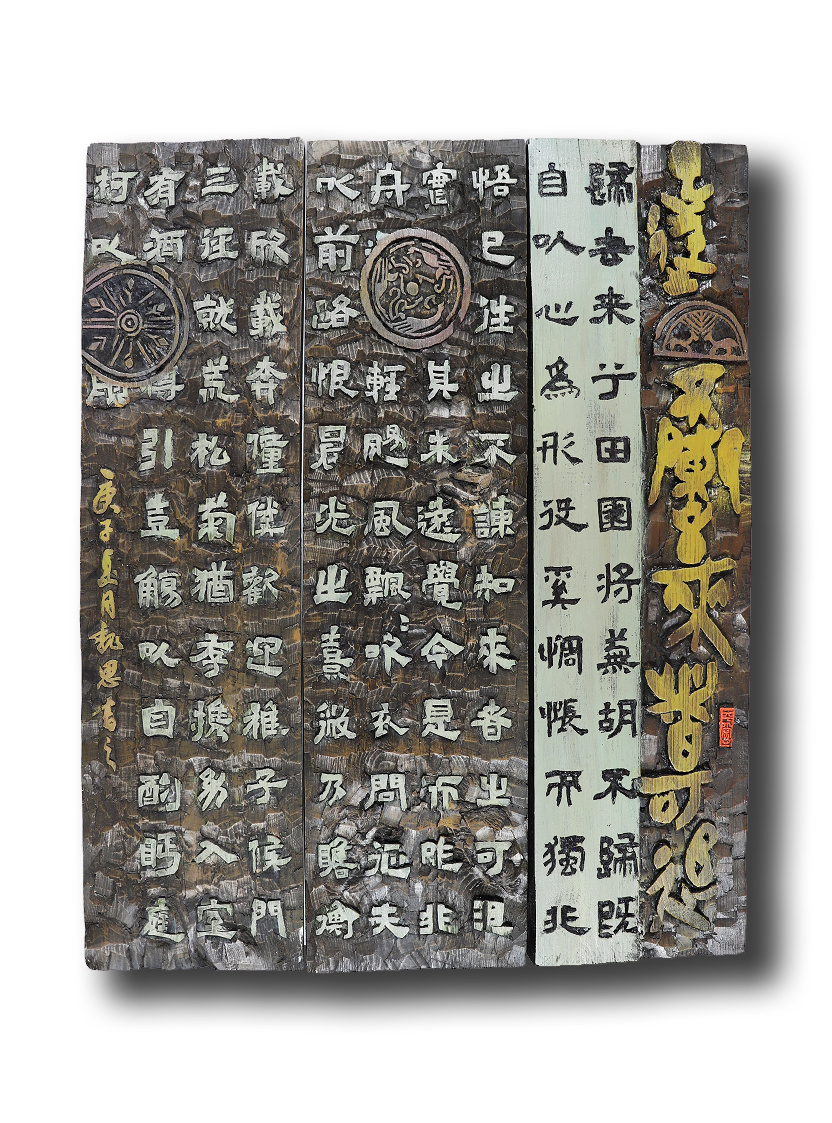 已往不諫來者可追
歸去来兮田園将蕪胡不歸既
自以心爲形役奚惆悵而獨悲
悟已往之不諫知來者之可追
實其未遠覺今是而昨非
舟輕颺風飄飄吹衣問征夫
以前路恨晨光之熹微乃瞻衡
載欣載奔僮僕歡迎稚子候門
三徑就荒松菊猶存攜幼入室
有酒樽引壺觴以自酌眄庭
柯以顏
庚子夏月思書之